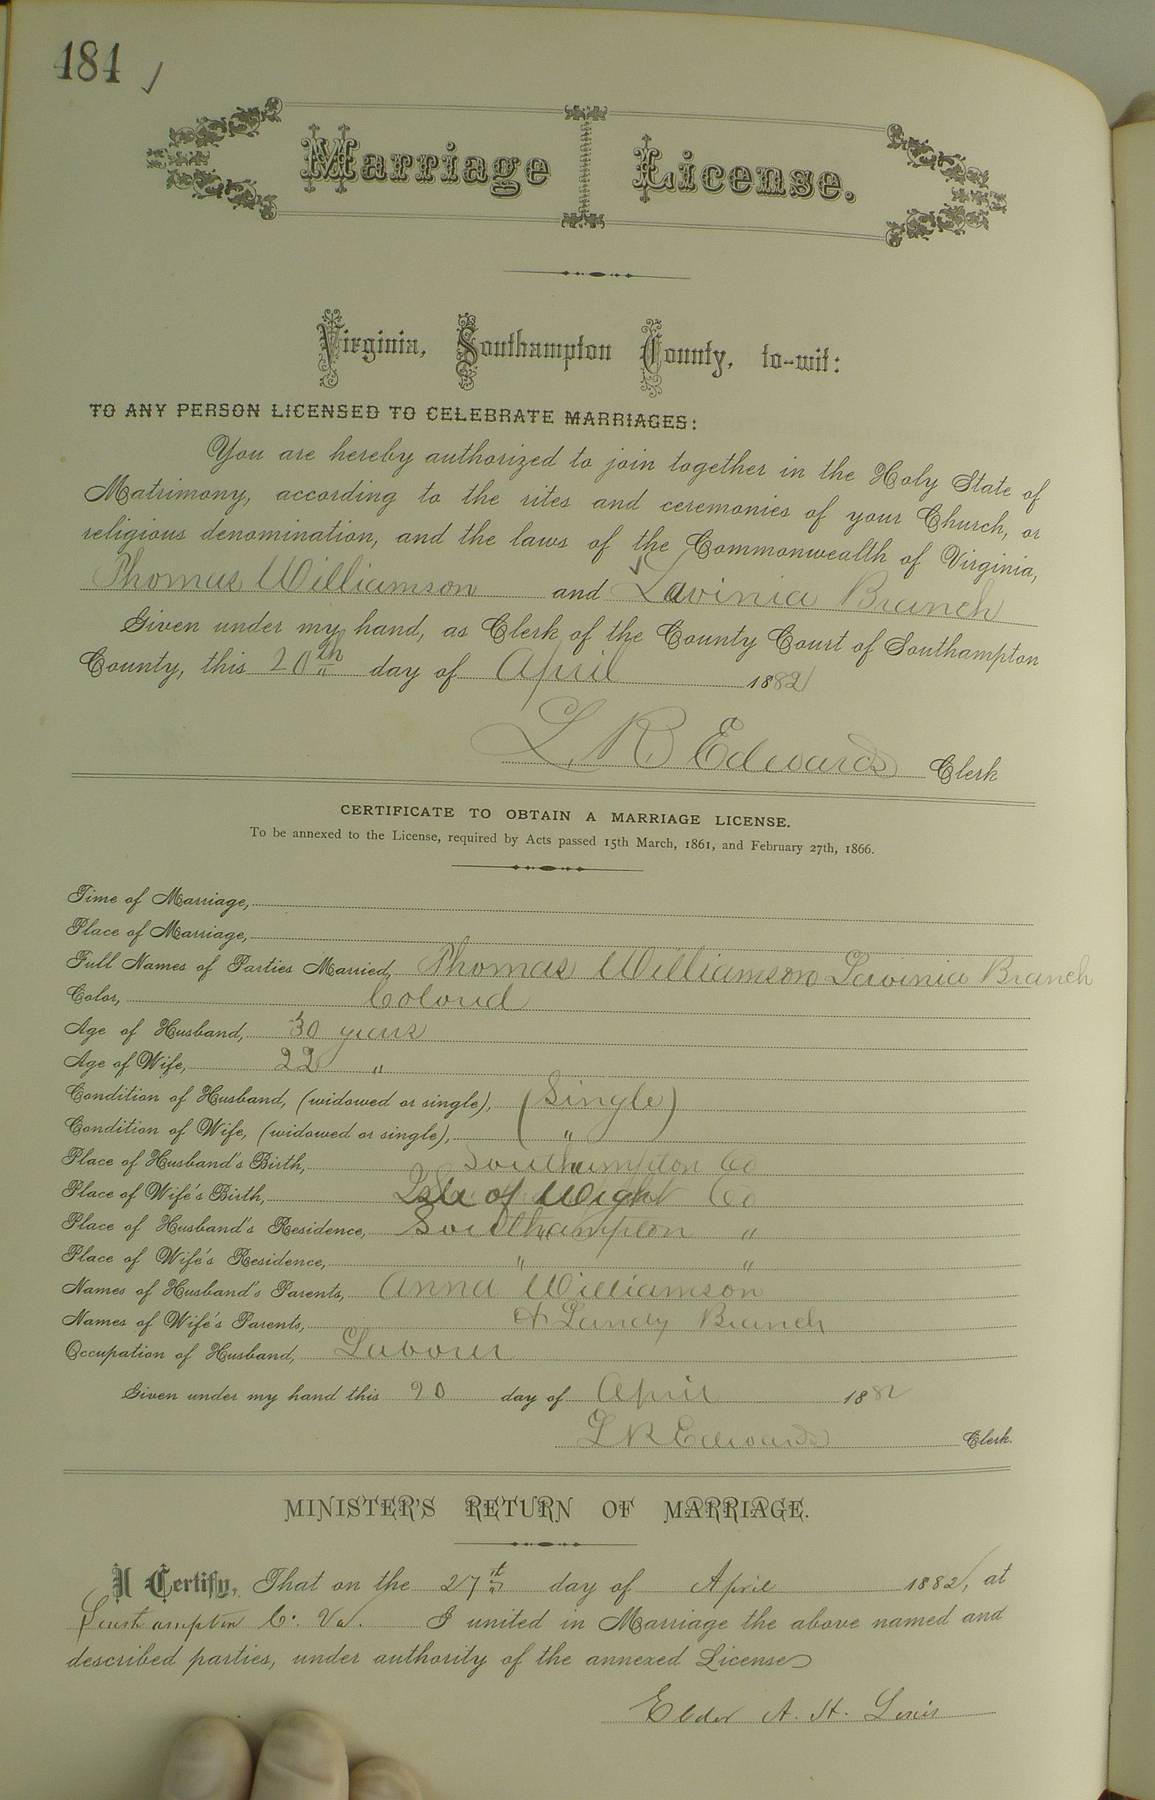 484
Marriage License.
Virginia, Southampton County, to-wit:
TO ANY PERSON LICENSED TO CELEBRATE MARRIAGES:
You are hereby authorized to join together in the Holy State of
Matrimony, according to the rites and ceremonies of your Church, or
religious denomination, and the laws of the Commonwealth of Virginia,
Thomas Williamson and Lavinia Branch
Given under my hand, as Clerk of the County Court of Southampton
County, this 20th day of April 1882
L R Edwards Clerk
CERTIFICATE TO OBTAIN A MARRIAGE LICENSE.
To be annexed to the License, required by Acts passed 15th March, 1861, and February 27th, 1866.
Time of Marriage,
Place of Marriage,
Full Names of Parties Married, Thomas Williamson Lavinia Branch
Color, Colord
Age of Husband, 30 years
Age of Wife, 22 "
Condition of Husband, (widowed or single), (Single)
Condition of Wife, (widowed or single), "
Place of Husband's Birth, Southampton Co
Place of Wife's Birth, Isle of Wight Co
Place of Husband's Residence, Southampton "
Place of Wife's Residence, " "
Names of Husband's Parents, Anna Williamson
Names of Wife's Parents, & Landy Branch
Occupation of Husband, Laborer
Given under my hand this 20 day of April 1882
L R Edwards Clerk.
MINISTER'S RETURN OF MARRIAGE.
I Certify, That on the 27th day of April 1882, at
Southampton Co. Va. I united in Marriage the above named and
described parties, under authority of the annexed License
Elder A. H. Lewis